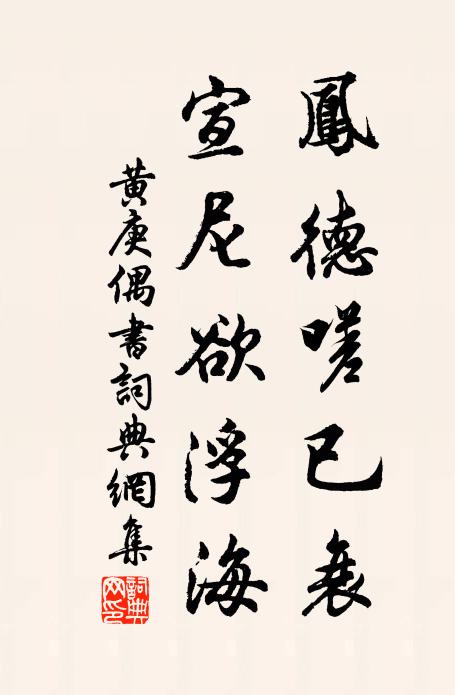 鳳德嗟已衰
宣尼欲浮海
黄庚偶書詞典網集
詞典网印